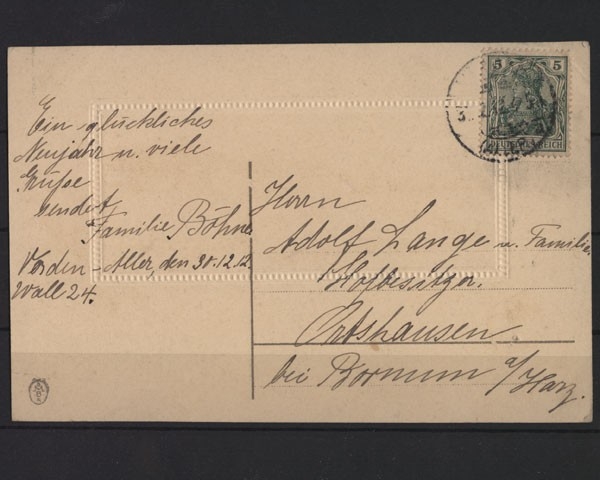 Ein glückliches
Neujahr u. viele
Grüße
sendet
Familie Böhne
Verden-Aller, den 30.12.12.
Wall 24.
5 5
DEUTSCHES REICH
Herrn
Adolf Lange u. Familie.
Hofbesitzer.
Ortshausen
bei Bornum a/Harz.